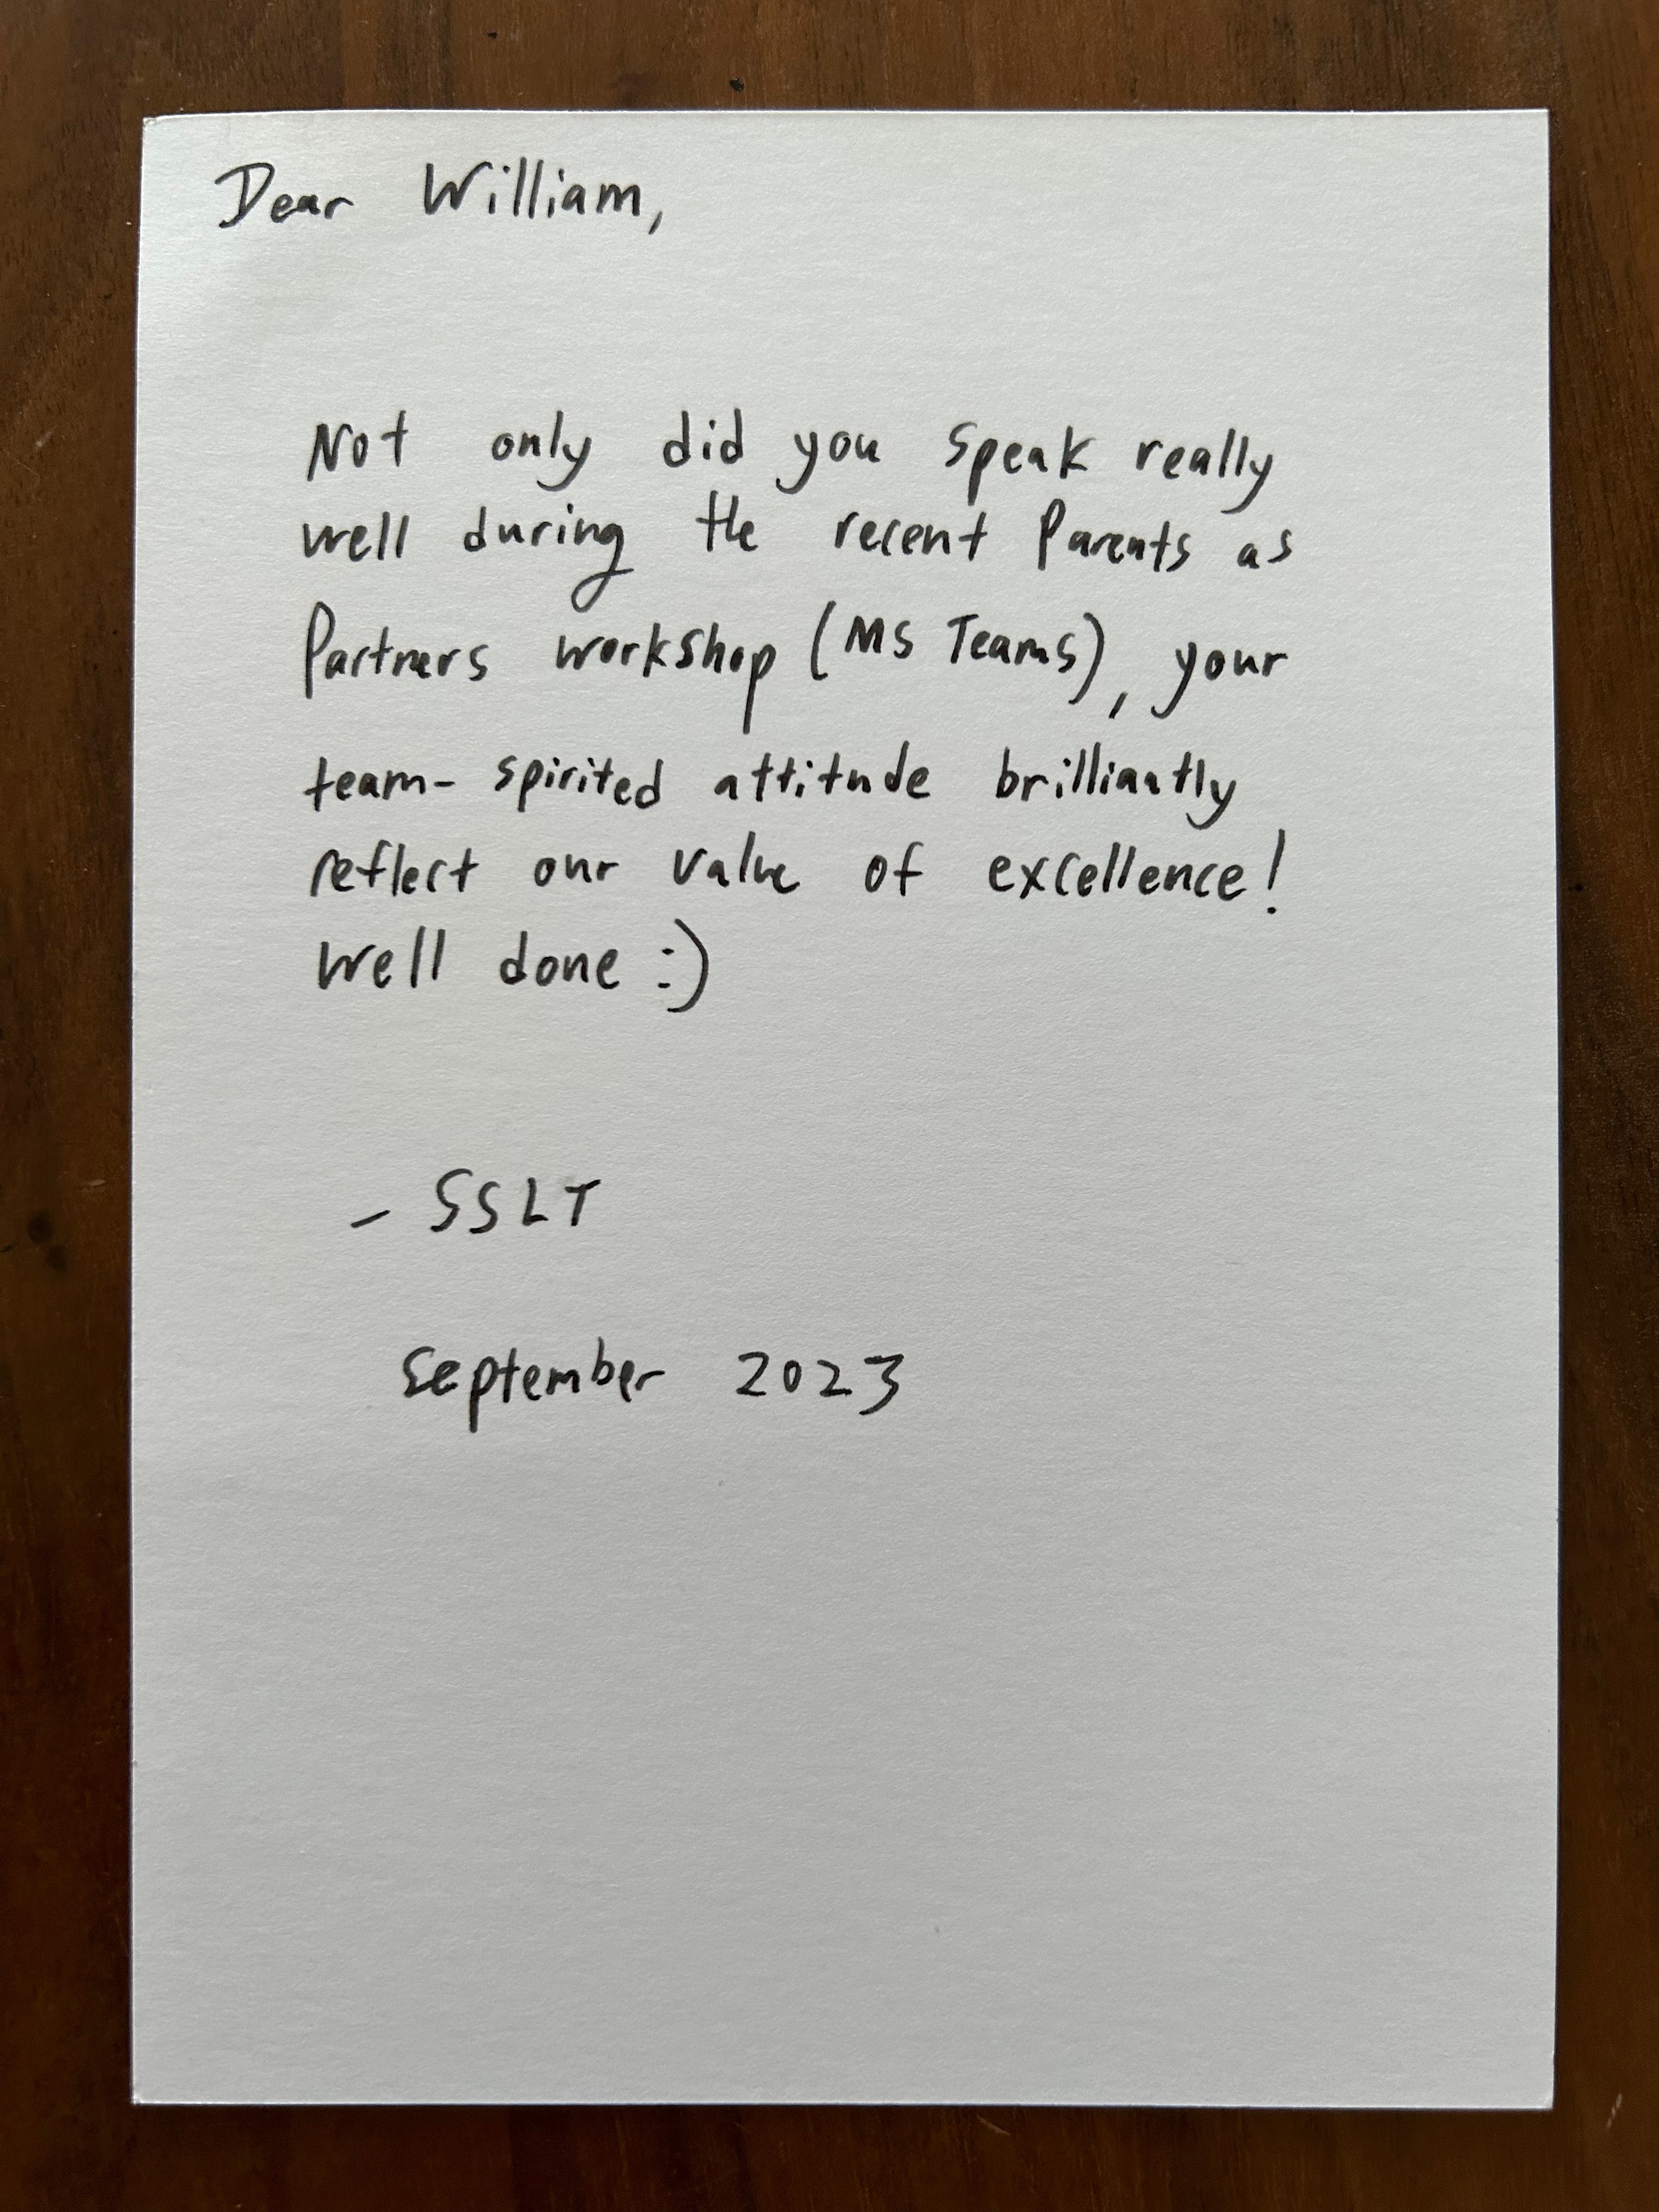 Dear William,
Not only did you speak really
well during the recent Parents as
Partners workshop (MS Teams), your
team-spirited attitude brilliantly
reflect our value of excellence!
Well done :)
- SSLT
September 2023